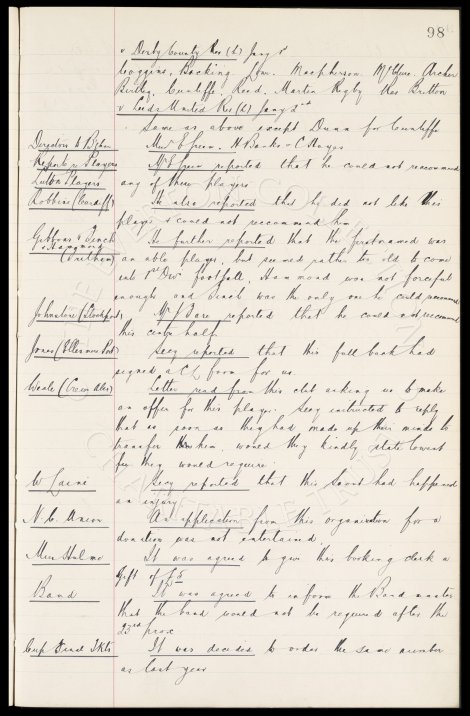 98
v Derby County Res (h) Jany 1st
Goggins, Backing, Low. Macpherson. McClure. Archer
Birtley, Cunliffe, Reid. Martin Rigby Kes Britton
v Leeds United Res (h) Jany 2nd
Same as above except Dunn for Cunliffe
Directors to Byhn Messrs E Green. H Banks & C Hayes
Report v Players Mr E Green reported that he could not recommend
Luton Players any of these players
Robbins (Cardiff) He also reported that he did not like this
player & could not recommend him
Gibbons & Finch He further reported that the first named was
& Hammond
(Fulham) an able player, but seemed rather too old to come
into 1st Div football, Hammond was not forceful
enough and Finch was the only one he could recommend
Johnstone (Stockport) Mr J Bare reported that he could not recommend
this centre half
Jones (Ellesmere Port) Secy reported that this full back had
signed a C/L form for us
Weale (Crewe Alex) Letter read from this club asking us to make
an offer for this player. Secy instructed to reply
that as soon as they had made up their minds to
transfer him, would they kindly state lowest
fee they would require
W Laini Secy reported that this Scout had happened
an injury
N.C. Union An application from this organisation for a
donation was not entertained
Mr Hulme It was agreed to give this booking clerk a
Gift of £5
Band It was agreed to inform the Band master
that the band would not be required after the
23rd prox
Cup Final Tkts It was decided to order the same number
as last year